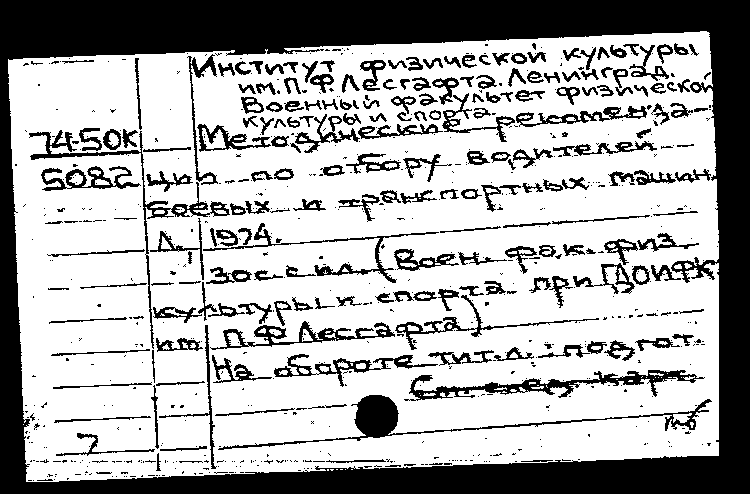 Институт физической культуры
им. П. Ф. Лесгафта. Ленинград.
Военный факультет физической
культуры и спорта.
74-50К Методические рекоменда-
5082 ции по отбору водителей
боевых и транспортных машин.
Л., 1974.
30с. с ил. (Воен. фак. физ.
культуры и спорта при ГДОИФК
им. П. Ф Лесгафта).
На обороте тит. л.: подгот.
См. след. карт.
7